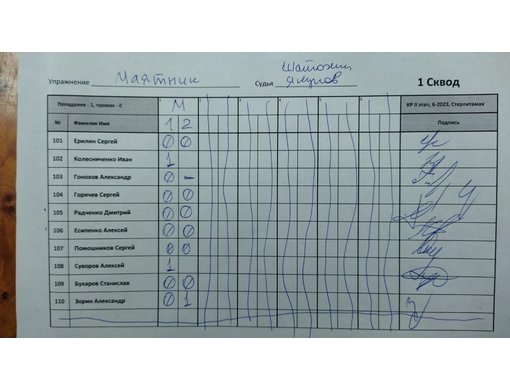 Шатохин
Упражнение Маятник Судья Якупов 1 Сквод
Попадание - 1, промах - 0 М КР II этап, 6-2023, Стерлитамак
№ Фамилия Имя 1 2 Подпись
101 Ерилин Сергей 0 0
102 Колесниченко Иван 1
103 Гонохов Александр 0 –
104 Горячев Сергей 0 0
105 Радченко Дмитрий 0 0
106 Есипенко Алексей 0 0
107 Помошников Сергей 0 0
108 Суворов Алексей 1
109 Бухаров Станислав 0 0
110 Зорин Александр 0 1